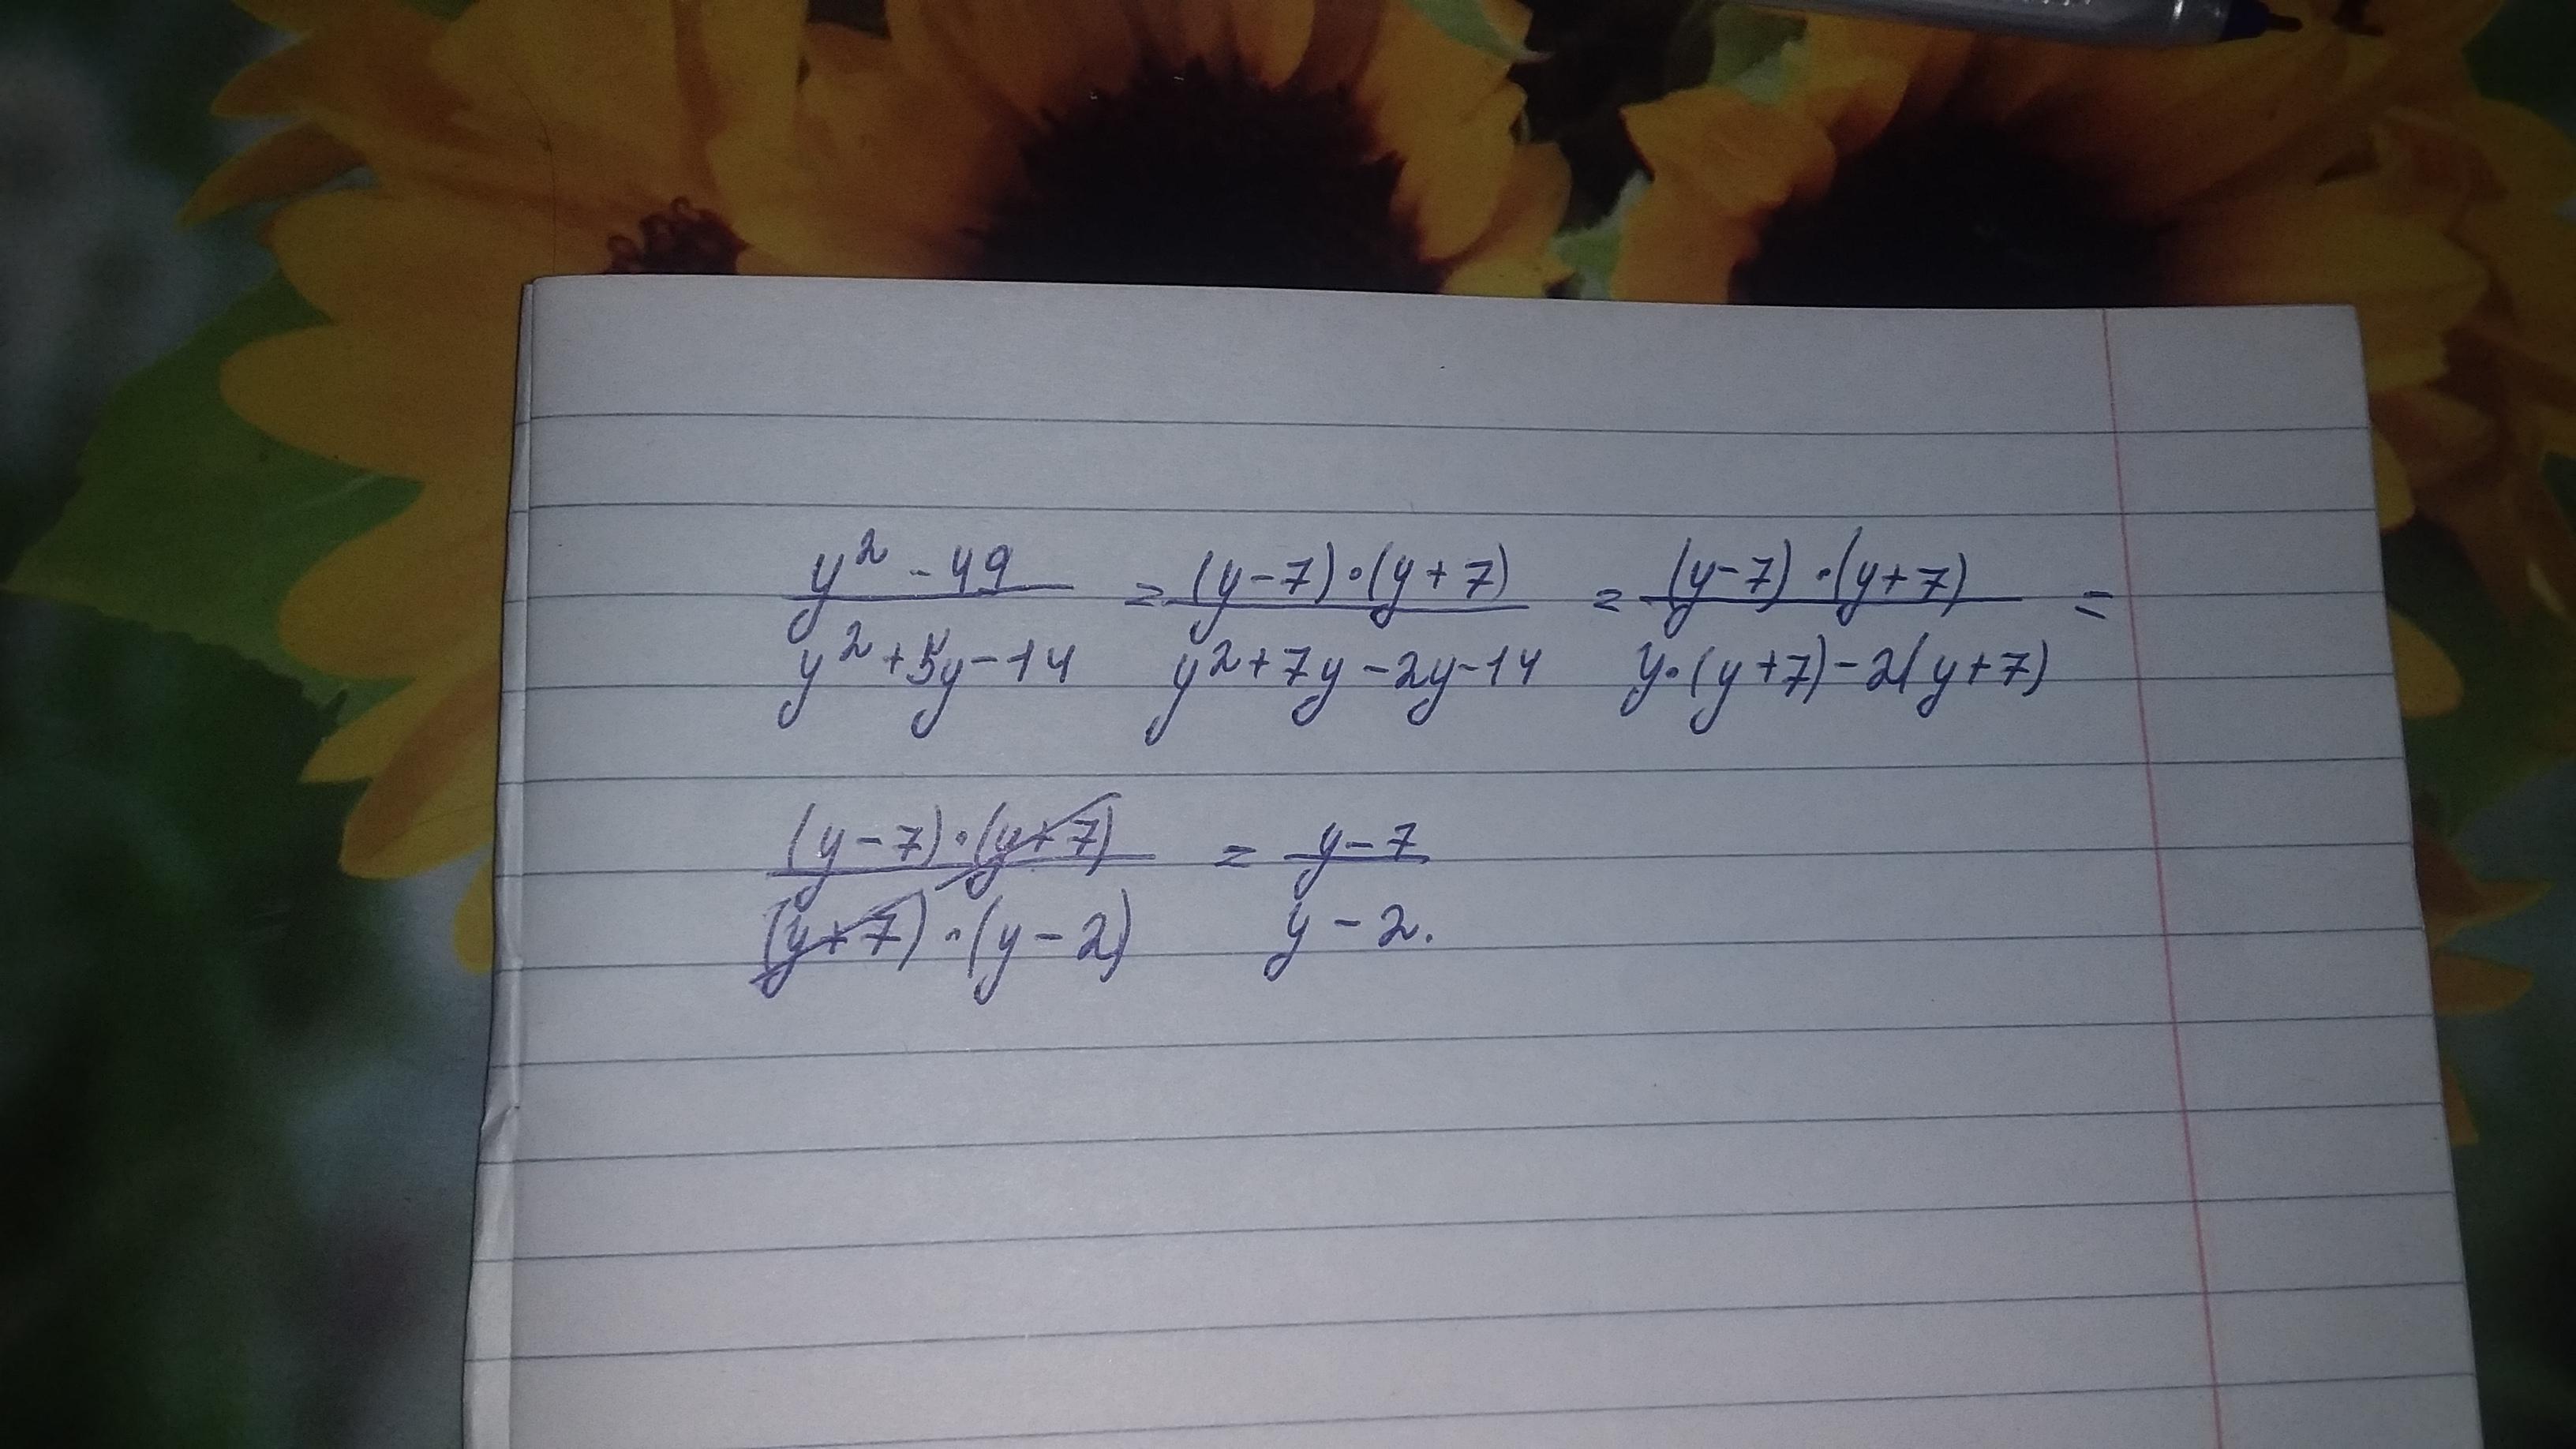 (y² - 49)/(y² + 5y - 14) = ((y - 7) · (y + 7))/(y² + 7y - 2y - 14) = ((y - 7) · (y + 7))/(y · (y + 7) - 2(y + 7)) =
((y - 7) · (y + 7))/((y + 7) · (y - 2)) = (y - 7)/(y - 2).